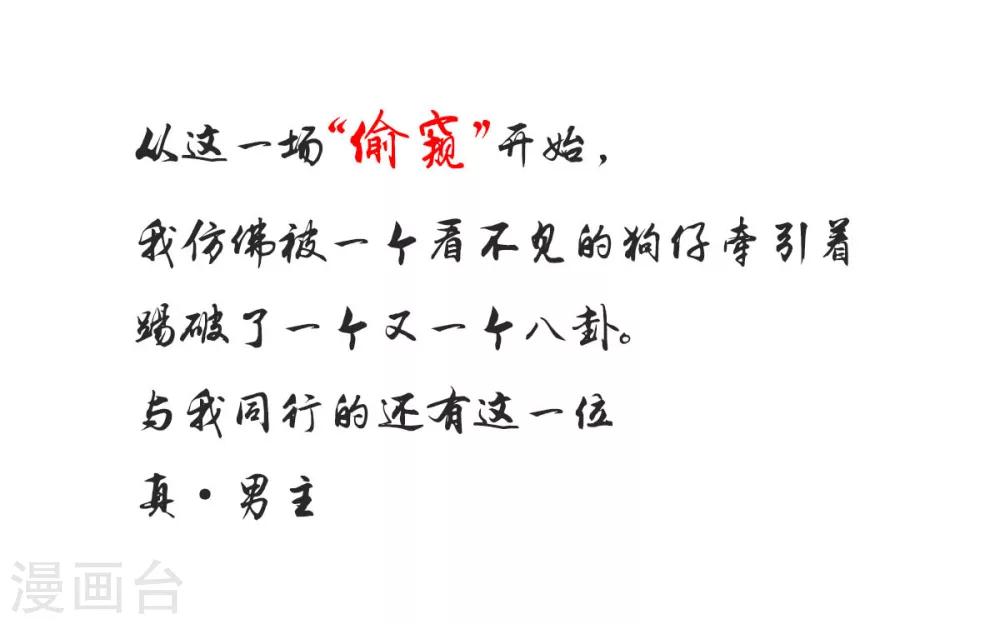 从这一场“偷窥”开始，
我仿佛被一个看不见的狗仔牵引着
踢破了一个又一个八卦。
与我同行的还有这一位
真·男主
漫画台